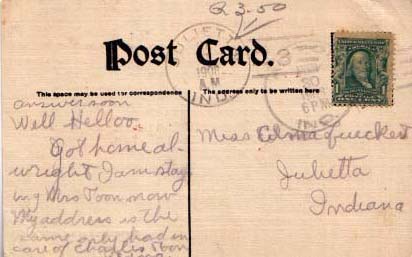 R 3.50
JULIETTA
A M
IND.
Post Card.
This space may be used for correspondence
The address only to be written here
6 PM
IND
answer soon
Well Helloo.
Got home al-
wright I am stay
ing Mrs Toon now
My address is the
same only had in
care of Charles Toon
Miss Alma Gueckert
Julietta
Indiana